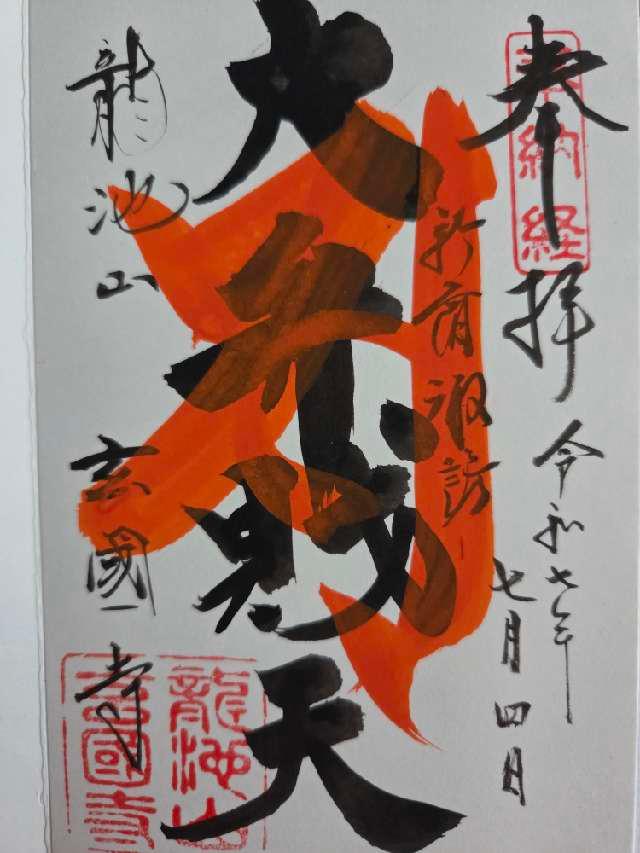 奉拝
令和七年
七月四日
新宿諏訪
大弁財天
龍池山
玄國寺
納経
龍池山
玄國寺